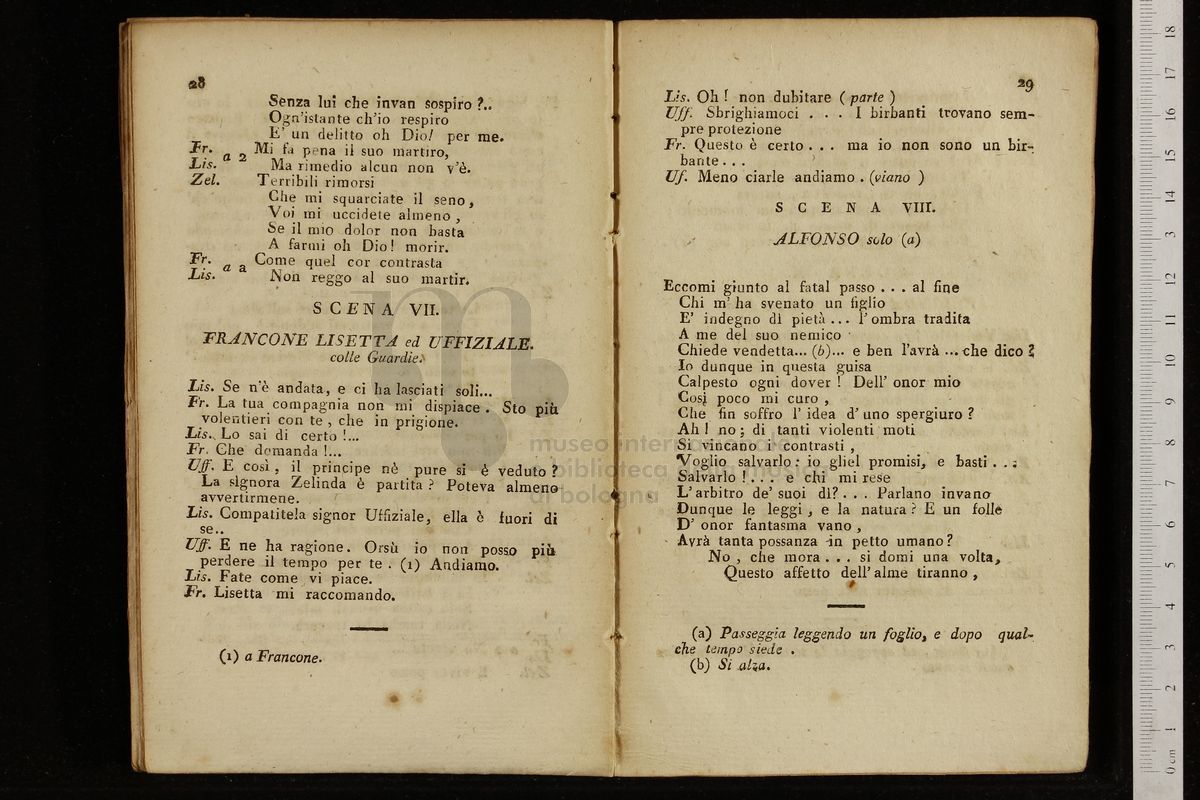 28
Senza lui che invan sospiro ?..
Ogn'istante ch'io respiro
E' un delitto oh Dio! per me.
Fr. a 2 Mi fa pena il suo martiro,
Lis. Ma rimedio alcun non v'è.
Zel. Terribili rimorsi
Che mi squarciate il seno,
Voi mi uccidete almeno,
Se il mio dolor non basta
A farmi oh Dio! morir.
Fr. a a Come quel cor contrasta
Lis. Non reggo al suo martir.
SCENA VII.
FRANCONE LISETTA ed UFFIZIALE.
colle Guardie.
Lis. Se n'è andata, e ci ha lasciati soli...
Fr. La tua compagnia non mi dispiace. Sto più
volentieri con te, che in prigione.
Lis. Lo sai di certo !...
Fr. Che domanda !...
Uff. E così, il principe nè pure si è veduto ?
La signora Zelinda è partita ? Poteva almeno
avvertirmene.
Lis. Compatitela signor Uffiziale, ella è fuori di
se..
Uff. E ne ha ragione. Orsù io non posso più
perdere il tempo per te. (1) Andiamo.
Lis. Fate come vi piace.
Fr. Lisetta mi raccomando.
(1) a Francone.
29
Lis. Oh ! non dubitare (parte)
Uff. Sbrighiamoci . . . I birbanti trovano sem-
pre protezione
Fr. Questo è certo . . . ma io non sono un bir-
bante . . .
Uf. Meno ciarle andiamo. (viano)
SCENA VIII.
ALFONSO solo (a)
Eccomi giunto al fatal passo . . . al fine
Chi m' ha svenato un figlio
E' indegno di pietà ... l' ombra tradita
A me del suo nemico
Chiede vendetta... (b)... e ben l'avrà ... che dico ?
Io dunque in questa guisa
Calpesto ogni dover ! Dell' onor mio
Così poco mi curo,
Che fin soffro l' idea d' uno spergiuro ?
Ah ! no ; di tanti violenti moti
Si vincano i contrasti,
Voglio salvarlo : io gliel promisi, e basti . . :
Salvarlo ! . . . e chi mi rese
L'arbitro de' suoi dì ? . . . Parlano invano
Dunque le leggi, e la natura ? E un folle
D' onor fantasma vano,
Avrà tanta possanza in petto umano ?
No, che mora . . . si domi una volta,
Questo affetto dell' alme tiranno,
(a) Passeggia leggendo un foglio, e dopo qual-
che tempo siede.
(b) Si alza.
museo internazionale
e biblioteca della musica
di bologna
0 cm 1 2 3 4 5 6 7 8 9 10 11 12 13 14 15 16 17 18